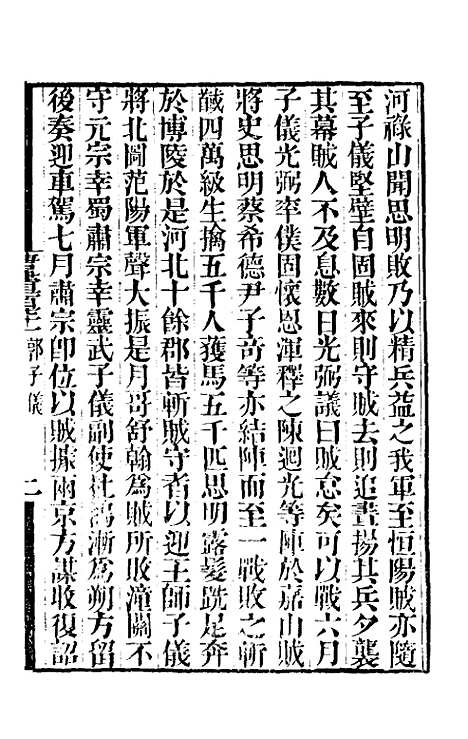 河祿山聞思明敗乃以精兵益之我軍至恒陽賊亦隨
至子儀堅壁自固賊來則守賊去則追晝揚其兵夕襲
其幕賊人不及息數日光弼議曰賊怠矣可以戰六月
子儀光弼率僕固懷恩渾釋之陳迴光等陣於嘉山賊
將史思明蔡希德尹子奇等亦結陣而至一戰敗之斬
馘四萬級生擒五千人獲馬五千匹思明露髮跣足奔
於博陵於是河北十餘郡皆斬賊守者以迎王師子儀
將北圖范陽軍聲大振是月哥舒翰為賊所敗潼關不
守元宗幸蜀肅宗幸靈武子儀副使杜鴻漸為朔方留
後奏迎車駕七月肅宗即位以賊據兩京方謀收復詔
郭子儀
二